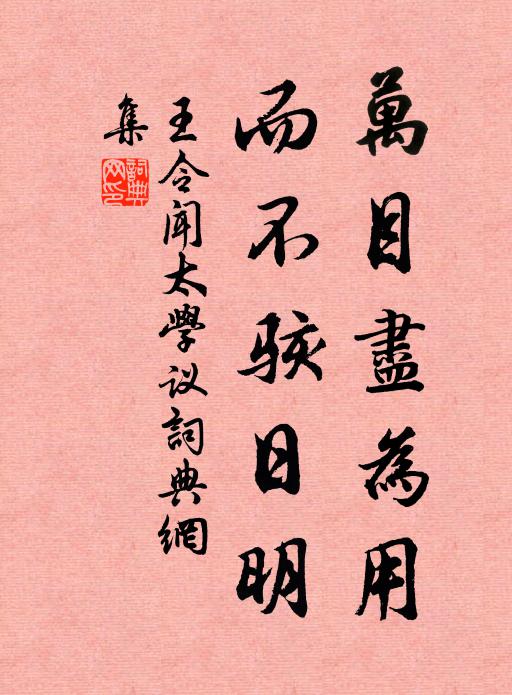 萬目盡為用
而不駭日明
王令聞太學议詞典網
集
詞典
网印